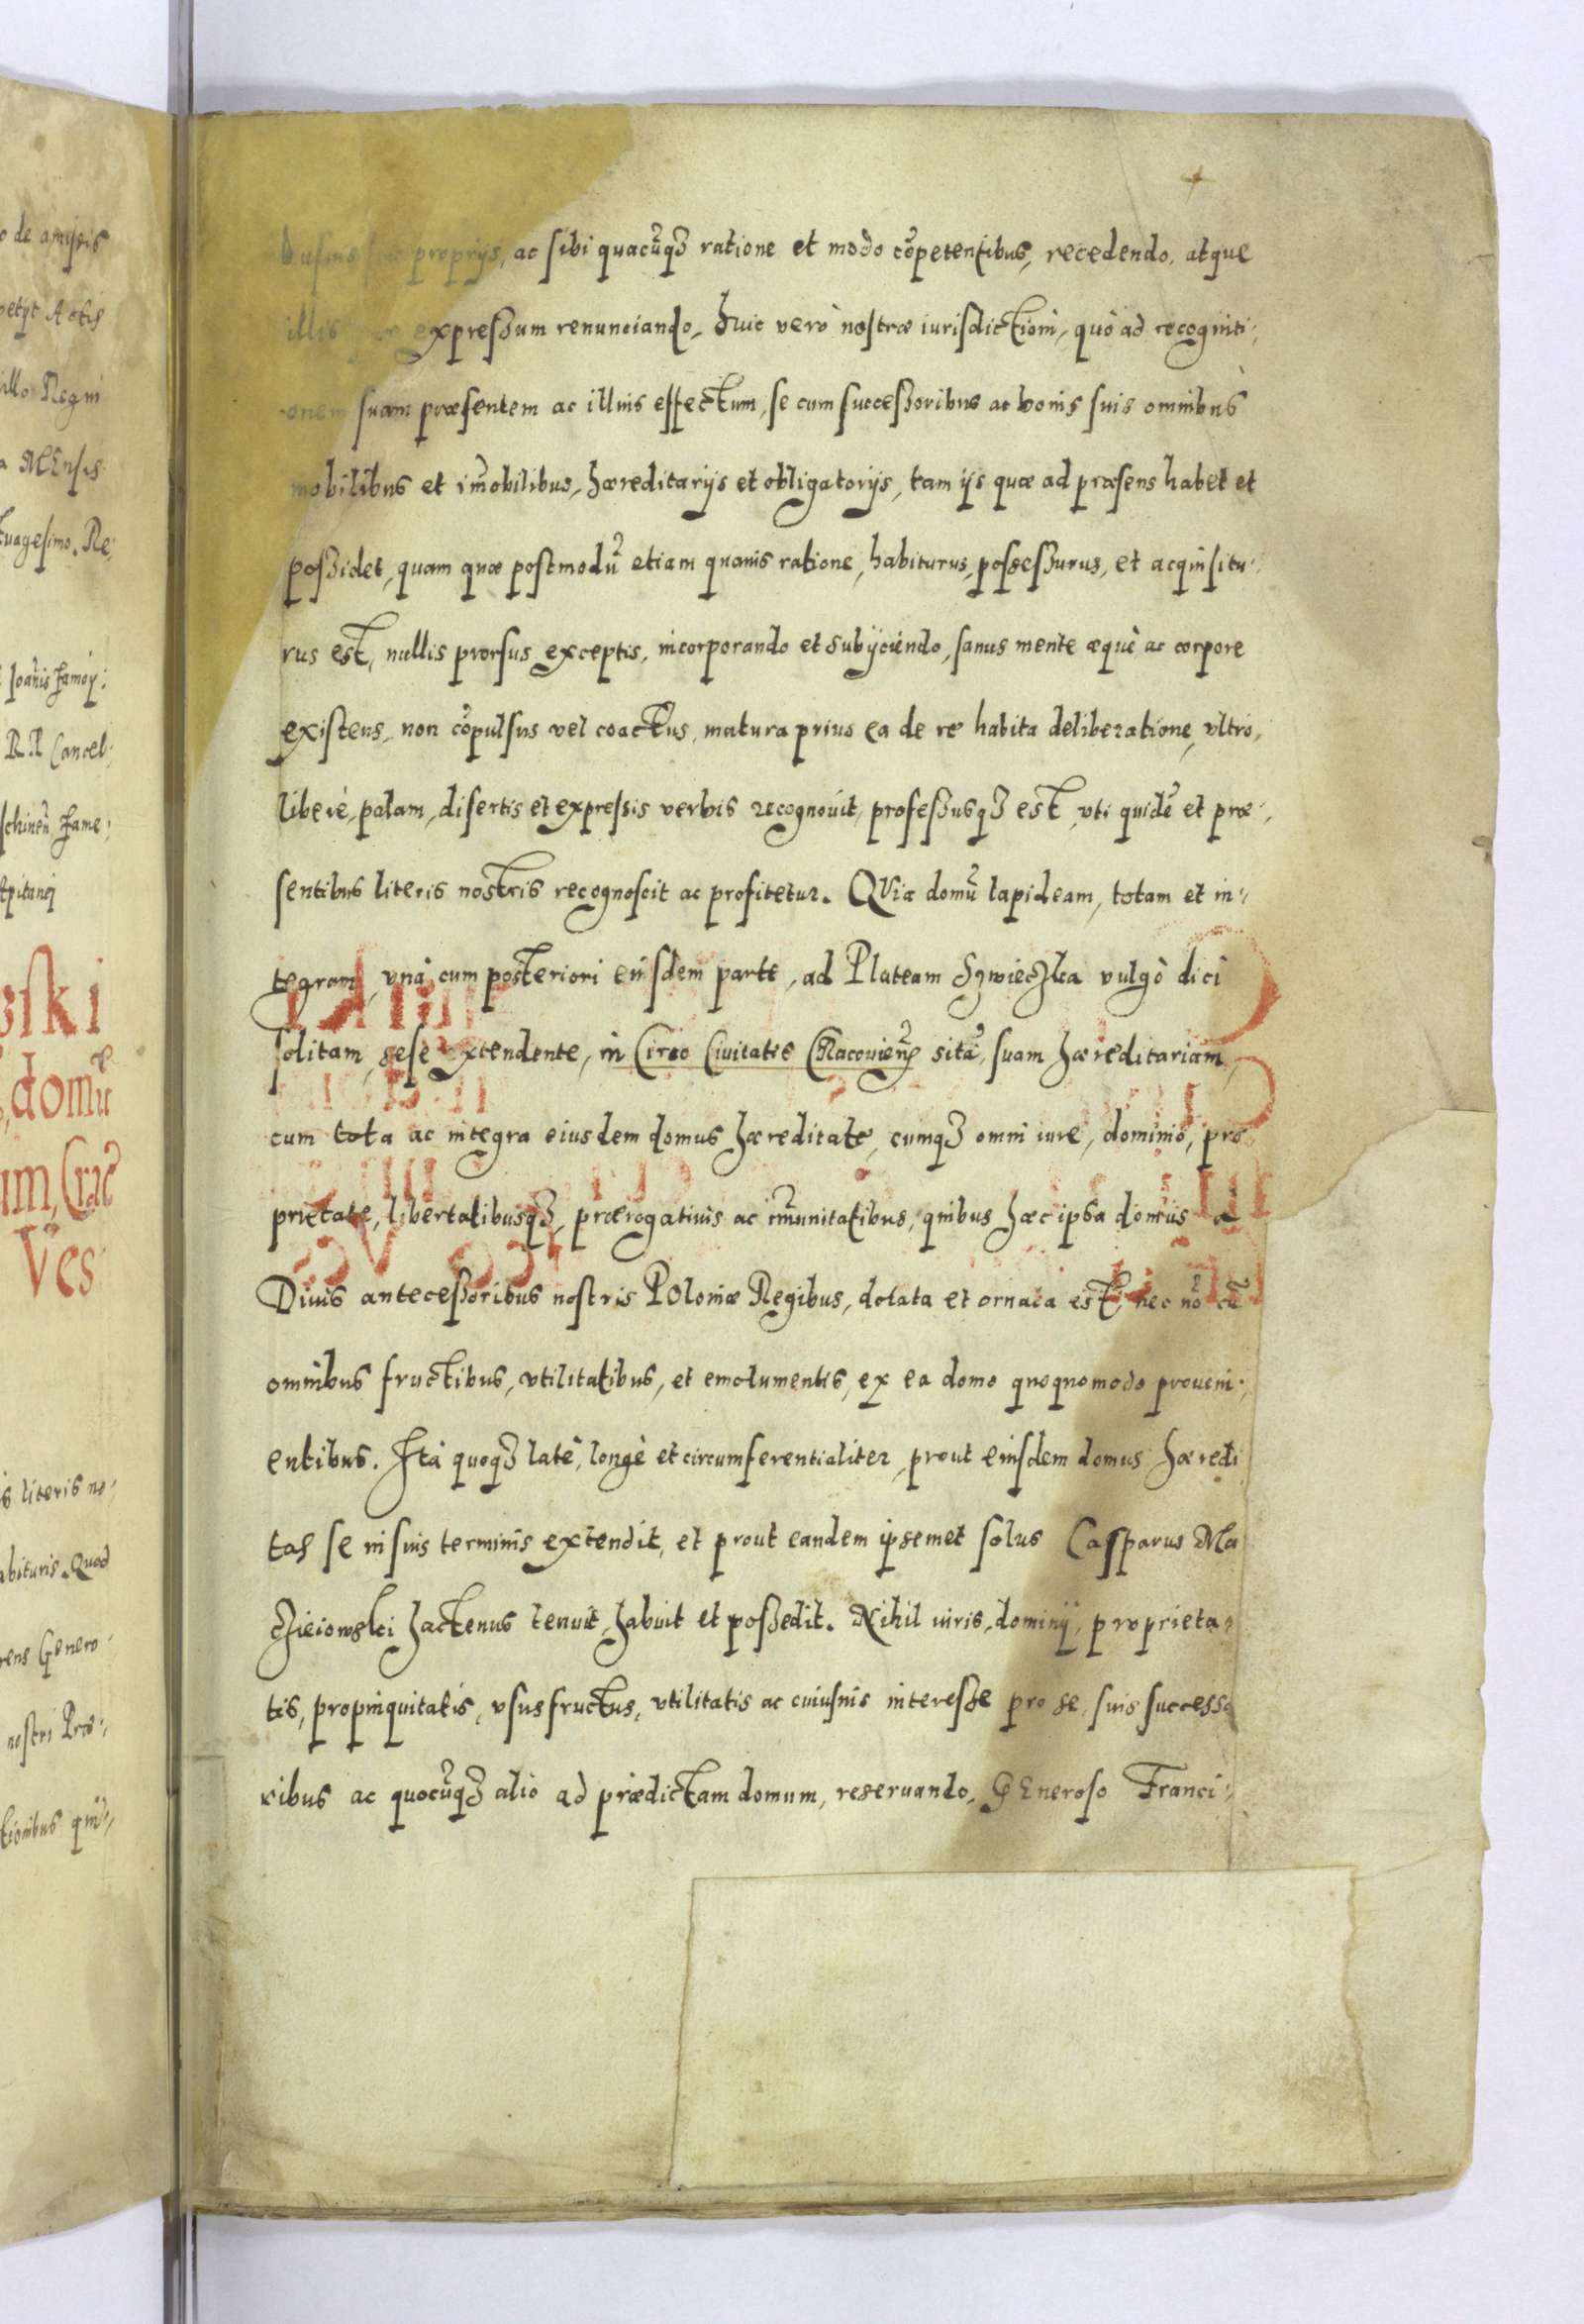 o de amissis
petijt Actis
illo Regni
a MEnsis
tuagesimo. Re:
Ioañis Zamoy:
R. P. Cancel:
schineñ, Zame:
apitanej
wski
domũ
um, Crac̃
Ves
is literis no:
abituris. Quod
rens Genero
nostri Præ:
tionibus qui
proprijs, ac sibi quacũqꝫ ratione et modo cõpetentibus, recedendo, atque
illis expressum renunciando, huic verò nostræ iurisdictioni, quò ad recogniti:
onem suam præsentem ac illius effectum, se cum successoribus ac bonis suis omnibus
mobilibus et im̃obilibus, hæreditarijs et obligatorijs, tam ijs quæ ad præsens habet et
possidet, quam quæ postmodũ etiam quauis ratione, habiturus, possessurus, et acquisitu:
rus est, nullis prorsus exceptis, incorporando et subijciendo, sanus mente æquè ac corpore
existens, non cõpulsus vel coactus, matura prius ea de re habita deliberatione, vltro,
liberè, palam, disertis et expressis verbis recognouit, professusqꝫ est, vti quidẽ et præ:
sentibus literis nostris recognoscit ac profitetur. QVia domũ lapideam, totam et in:
tegram, vnà cum posteriori eiusdem parte, ad Plateam Szwieczka vulgò dici
solitam, sese extendente, in Circo Ciuitatis CRacouieñ sitã, suam hæreditariam,
cum tota ac integra eiusdem domus hæreditate, cumqꝫ omni iure, dominio, pro
prietate, libertatibusqꝫ, prærogatiuis ac im̃unitatibus, quibus hæc ipsa domus a
Diuis antecessoribus nostris POloniæ Regibus, dotata et ornata est, nec nõ cũ
omnibus fructibus, vtilitatibus, et emolumentis, ex ea domo quoquomodo proueni:
entibus. Ita quoqꝫ latè, longè et circumferentialiter, prout eiusdem domus hæredi
tas se in suis terminis extendit, et prout eandem ipsemet solus Casparus Ma
cżieiowski hactenus tenuit, habuit et possedit. Nihil iuris, dominij, proprieta:
tis, propinquitatis, vsusfructus, vtilitatis ac cuiusuis interesse pro se, suis successo
ribus ac quocũqꝫ alio ad prædictam domum, reseruando, GEneroso Franci: